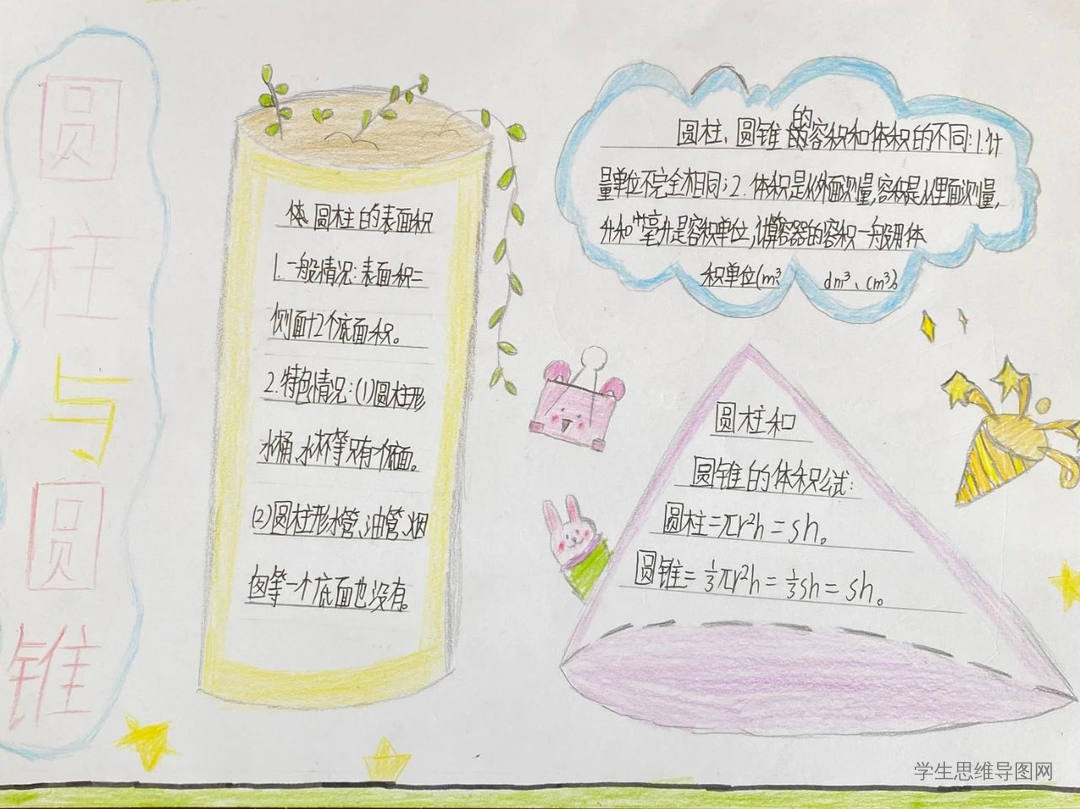 圆柱与圆锥
体、圆柱的表面积
1.一般情况:表面积=
侧面+2个底面积。
2.特色情况:(1)圆柱形
水桶、水杯等只有一个底面。
(2)圆柱形水管、油管、烟
囱等一个底面也没有。
圆柱、圆锥的容积和体积的不同:1.计
量单位不完全相同;2.体积是从外面测量,容积是从里面测量,
升和毫升是容积单位,计算容器的容积一般用体
积单位(m³ dm³、cm³)
圆柱和
圆锥的体积公试:
圆柱=πr²h=sh。
圆锥=⅓πr²h=⅓sh=sh。
学生思维导图网